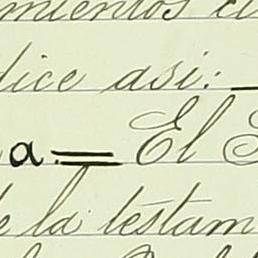 mientos ci
dice asi: —
a. = El S
e la testam